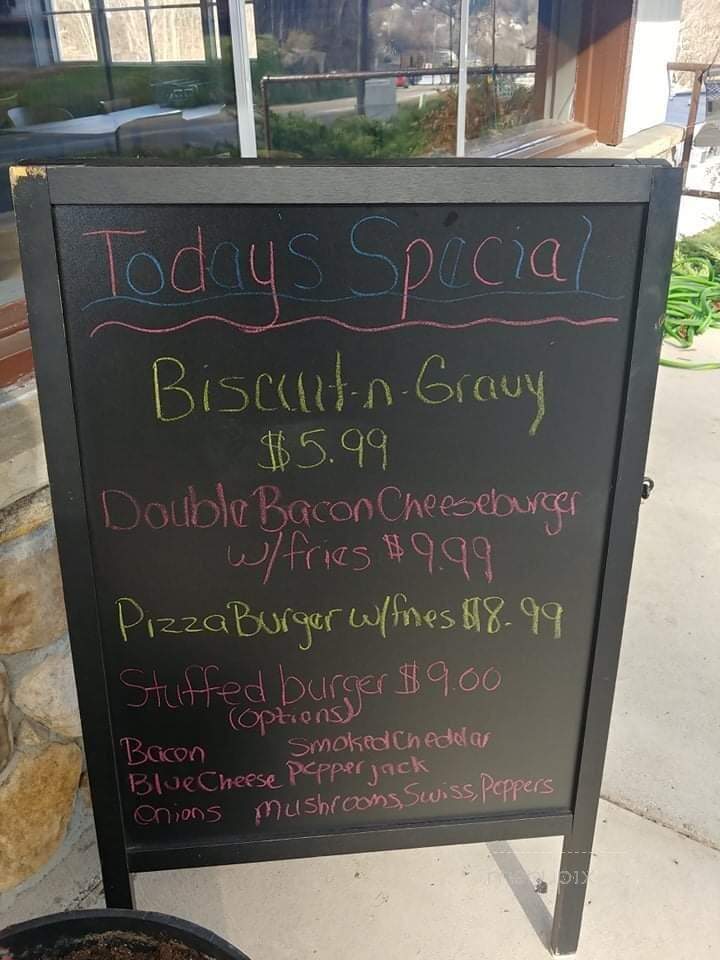 Today's Special
Biscuit-n-Gravy
$5.99
Double Bacon Cheeseburger
w/fries $9.99
Pizza Burger w/fries $8.99
Stuffed burger $9.00
(options)
Bacon Smoked Cheddar
Blue Cheese Pepper jack
onions Mushrooms, Swiss, Peppers